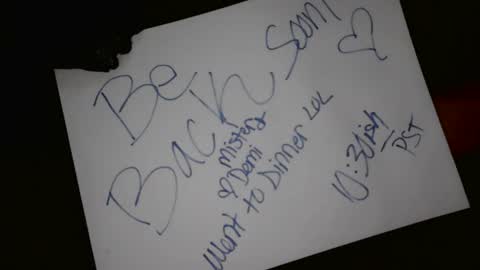 Be
Back Soon!
♡
Mistery
& Demi
Went to Dinner LOL
10:30ish
PST